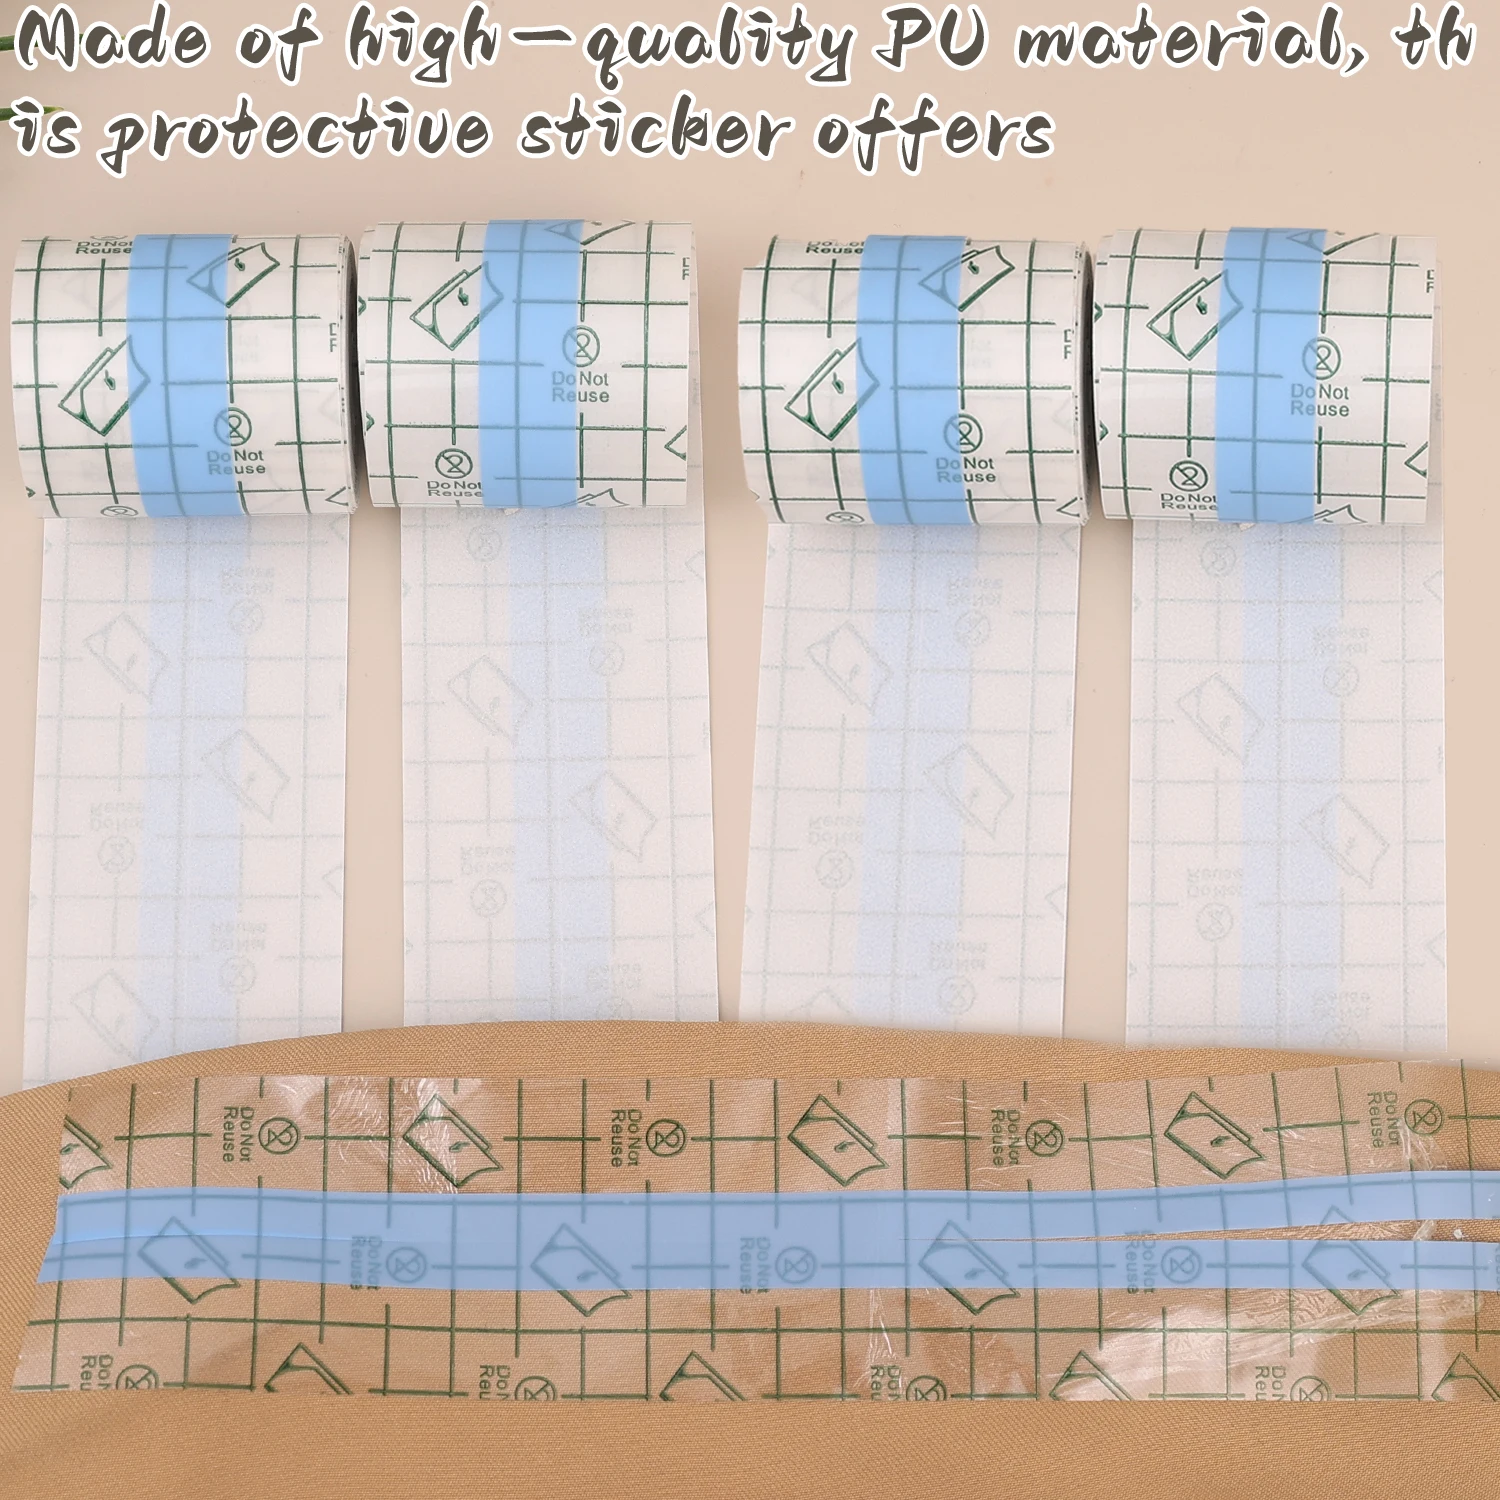 Made of high-quality PU material, th
is protective sticker offers
Do Not
Reuse
Do Not
Reuse
Do Not
Reuse
Do Not
Reuse
Do Not
Reuse
Do Not
Reuse
Do Not
Reuse
Do Not
Reuse
Do Not
Reuse
Do Not
Reuse
Do Not
Reuse
Do Not
Reuse
Do Not
Reuse
Do Not
Reuse
Do Not
Reuse
Do Not
Reuse